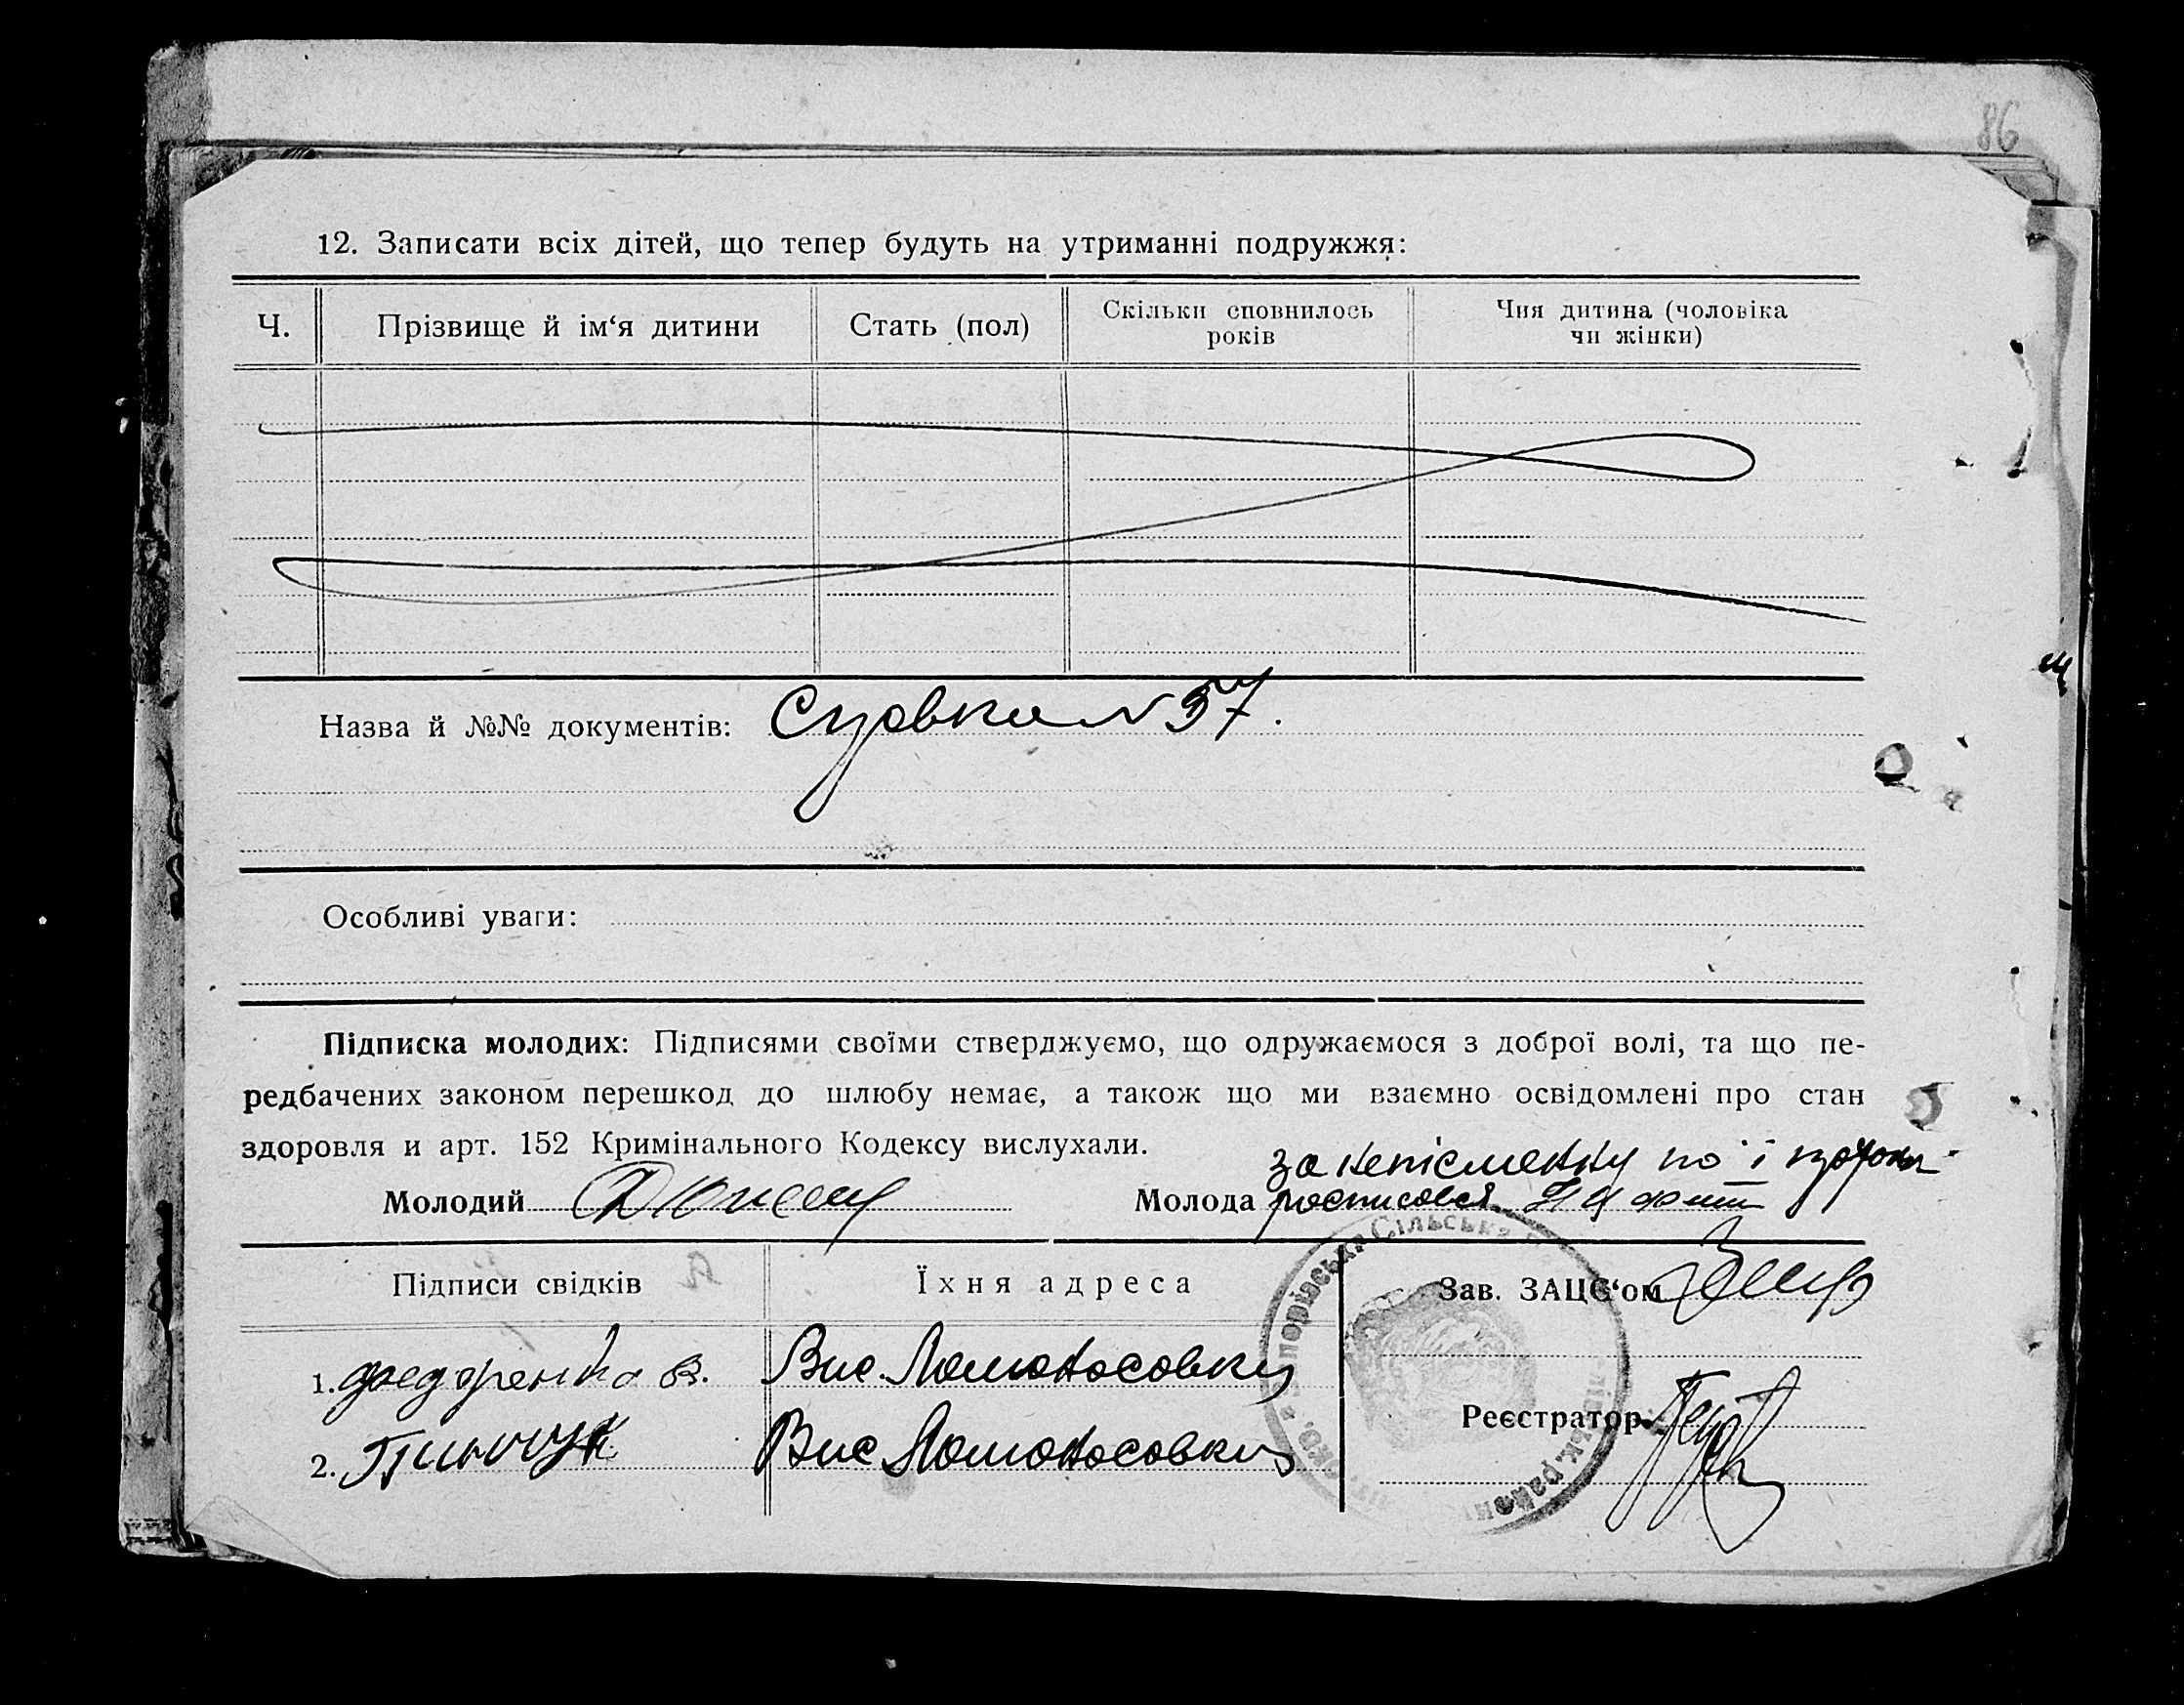 86
12. Записати всіх дітей, що тепер будуть на утриманні подружжя:
Ч. Прізвище й ім‘я дитини Стать (пол) Скільки сповнилось років Чия дитина (чоловіка чи жінки)
Назва й №№ документів: N 57.
Особливі уваги:
Підписка молодих: Підписями своїми стверджуємо, що одружаємося з доброї волі, та що пе-
редбачених законом перешкод до шлюбу немає, а також що ми взаємно освідомлені про стан
здоровля и арт. 152 Кримінального Кодексу вислухали.
за неписменну по її
Молодий Молода росписався
Підписи свідків Їхня адреса Зав. ЗАЦС‘ом
1. Федоренко В. Вис. Ломоносовка
Реєстратор
2. Пинчук Вис Ломоносовка
Сільська
район